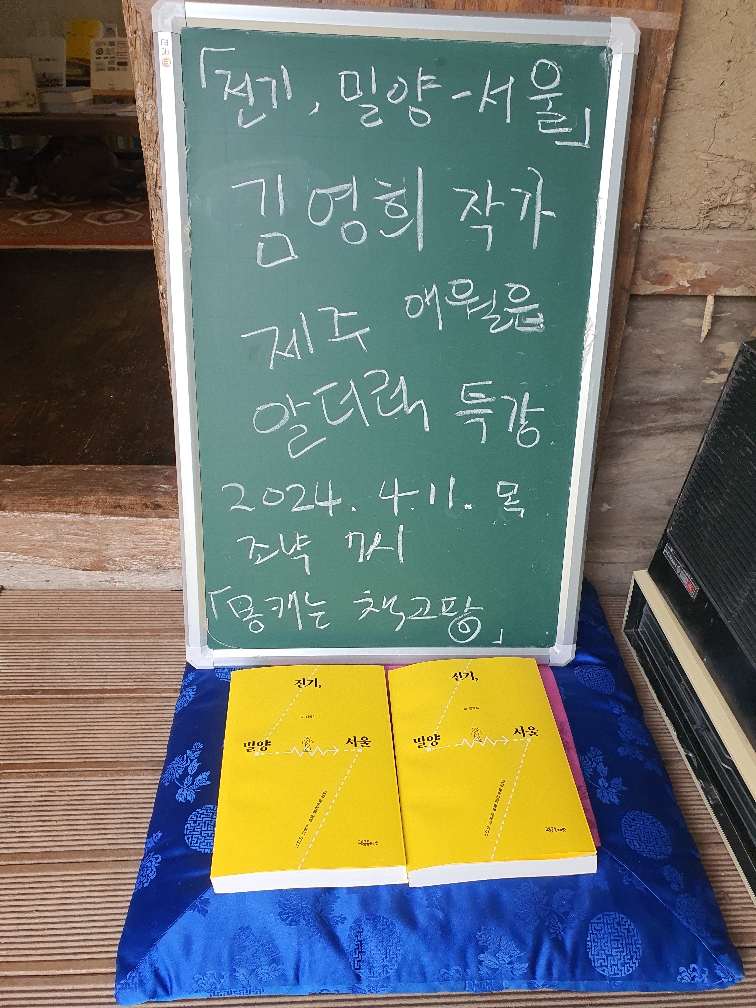 「전기, 밀양-서울」
김영희 작가
제주 애월읍
알더락 특강
2024. 4. 11. 목
조녁 7시
「몽캐는 책고팡」
전기,
밀양
서울
전기,
밀양
서울